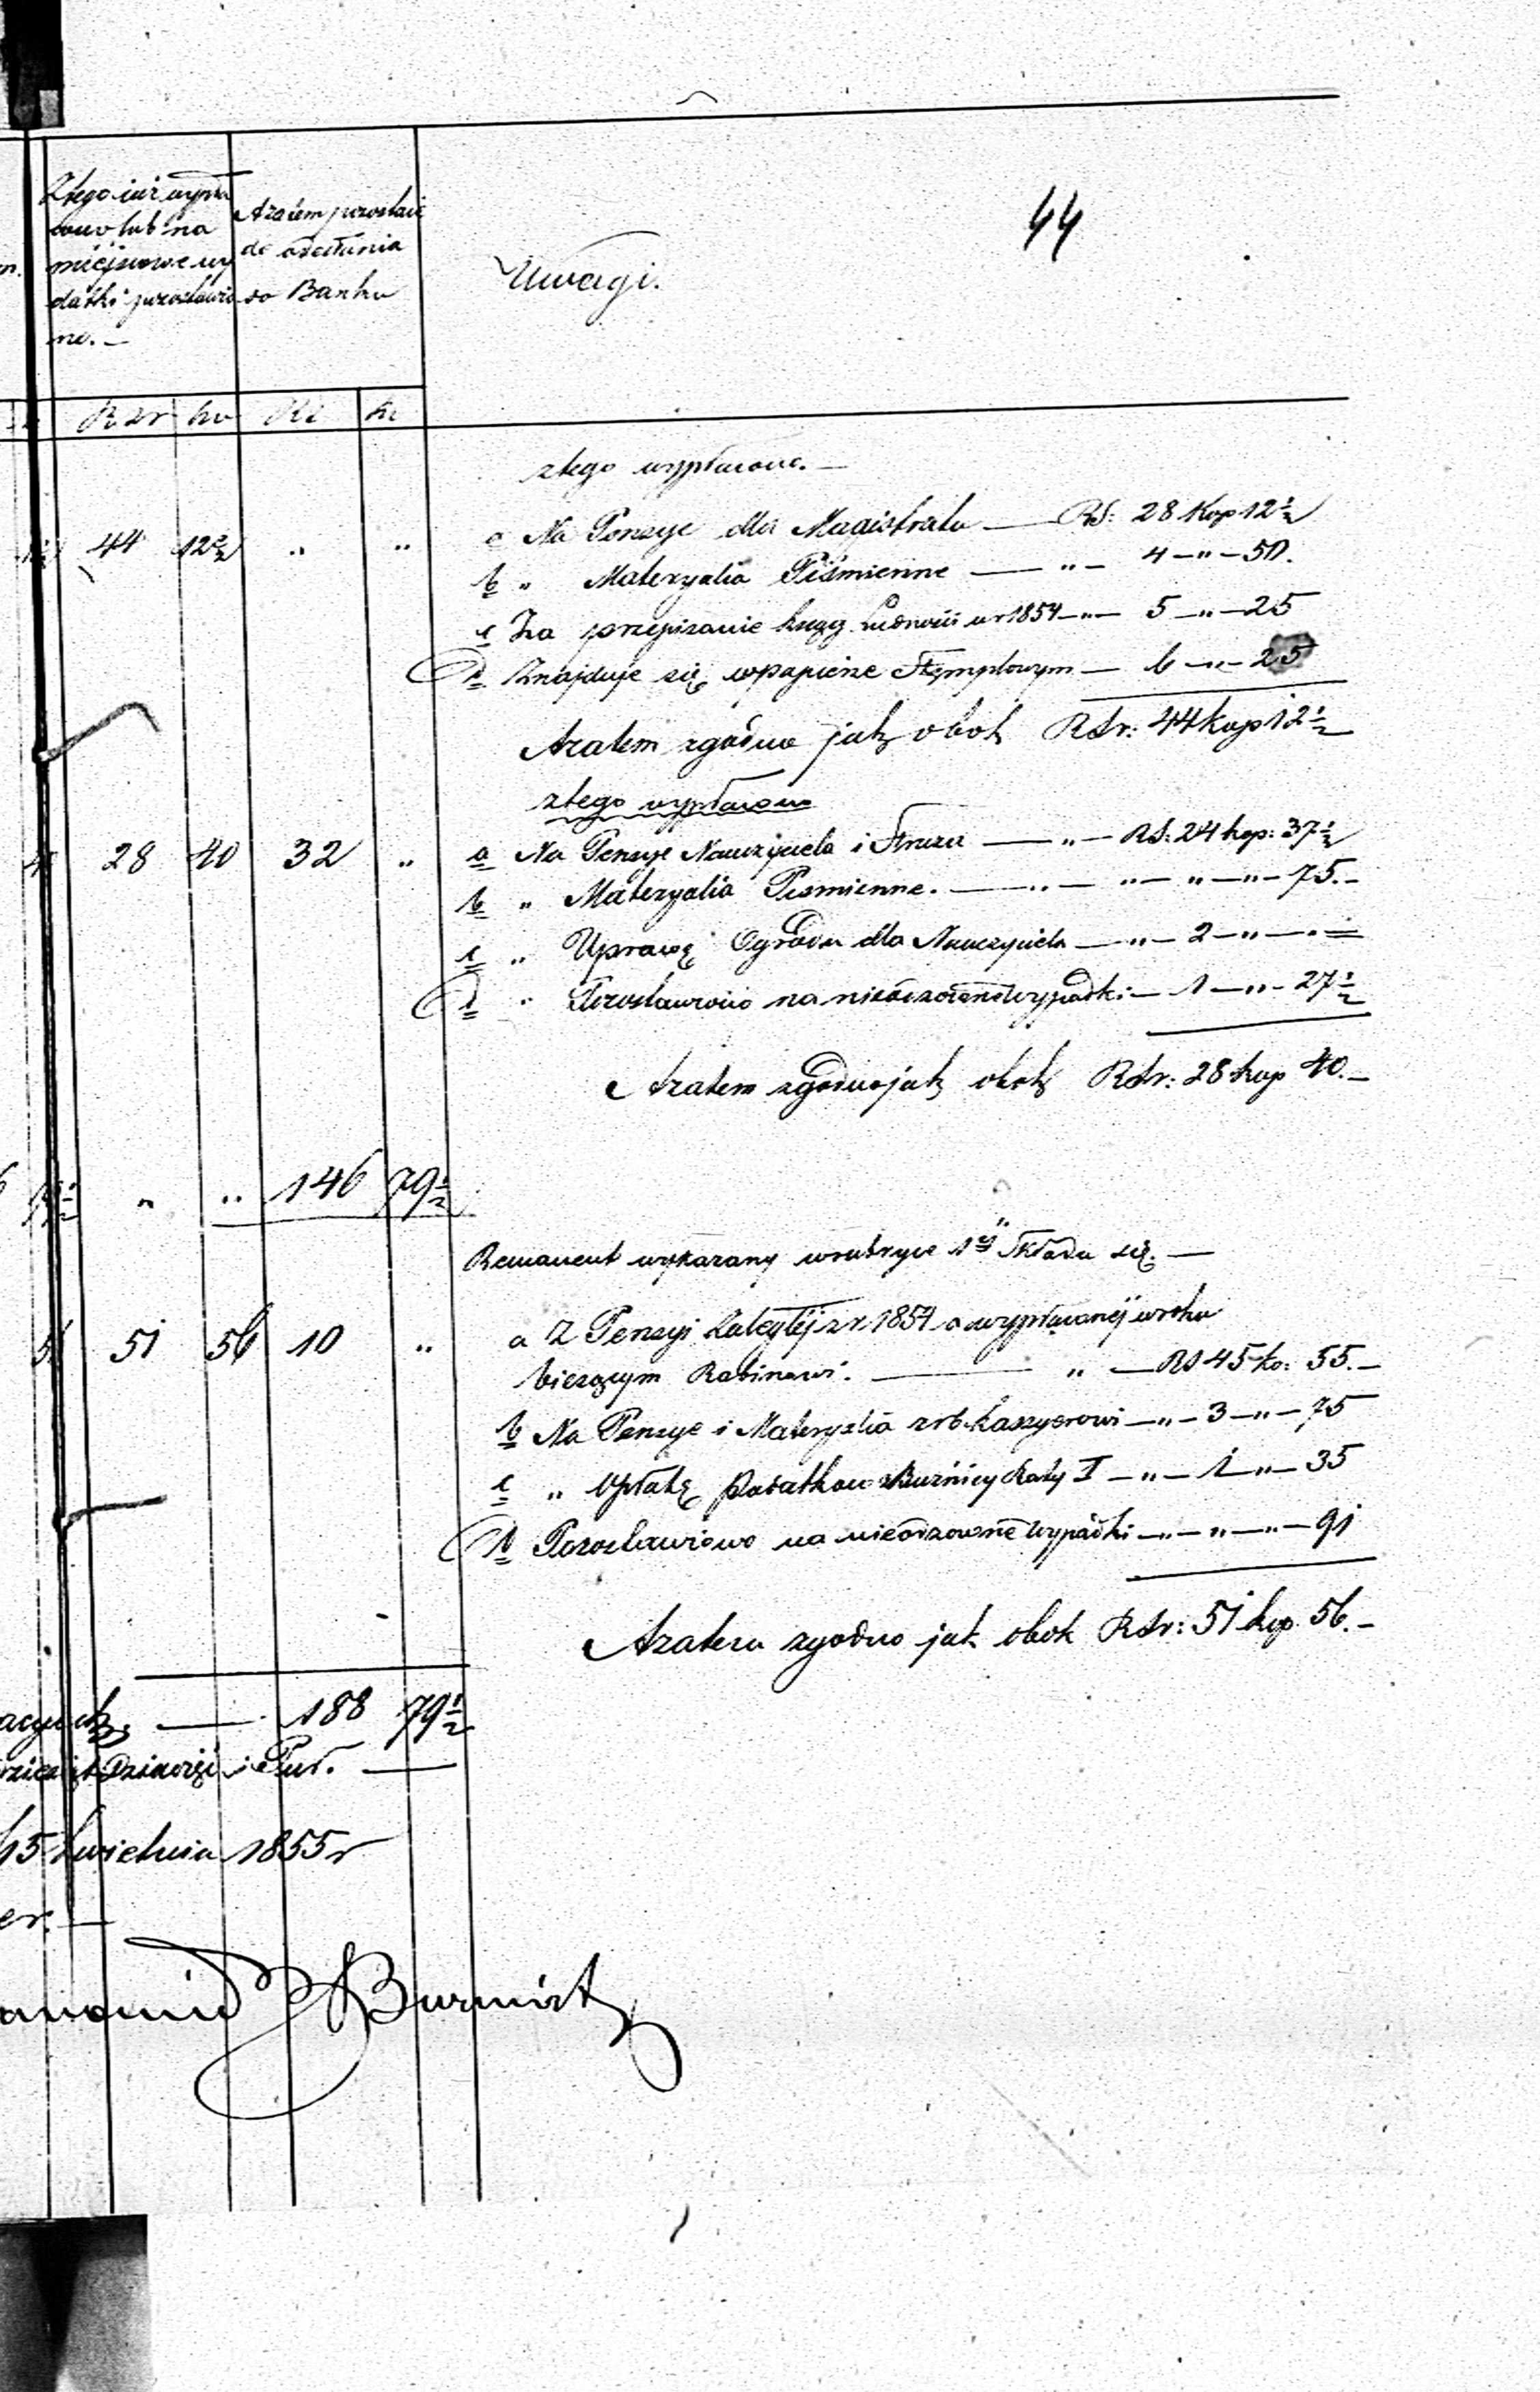 44
Z tego już wypła
cono lub na
miejscowe wy
datki pozostawio
no. —
A zatem pozostaie
do odesłania
do Banku
Uwagi.
Rsr ko Rs ko
z tego wypłacono. —
44 12½ " "
a Na Pensye dla Magistratu — RS: 28 Kop 12½
b " Materyalia Piśmienne — " — 4 — " — 50.
c Za przepisanie księg Ludności w r 1854 — " — 5 — " — 25
d Znajduje się w papierze Stęmplowym — 6 — " — 25
Azatem zgodno jak obok RSr: 44 kop 12½
z tego wypłacono
28 40 32 "
a Na Pensye Nauczyciela i Struża — " — RS: 24 kop: 37½
b " Materyalia Pismienne. — " — " — " — " — 75. —
c " Uprawę Ogrodu dla Nauczyciela — " — 2 — " — " —
d " Pozostawiono na nieodzowne wypadki — 1 — " — 27½
Azatem zgodno jak obok RSr: 28 kop 40. —
" " 146 79½
Remanent wykazany w rubryce 1éj Składa się. —
51 56 10 "
a Z Pensyi Zaległéj z r. 1854 a wypłaconéj w roku
bieżącym Rabinowi. — " — RS 45 ko: 55. —
b Na Pensye i Materyalia z rb. Kassyerowi — " — 3 — " — 75
c " Opłatę Podatków z Bużnicy Raty I — " — 1 — " — 35
d Pozostawiono na nieodzowne wypadki — " — " — " — 91
Azatem zgodno jak obok RSr: 51 kop. 56. —
— 188 79½
15 kwietnia 1855 r
Burmistrz